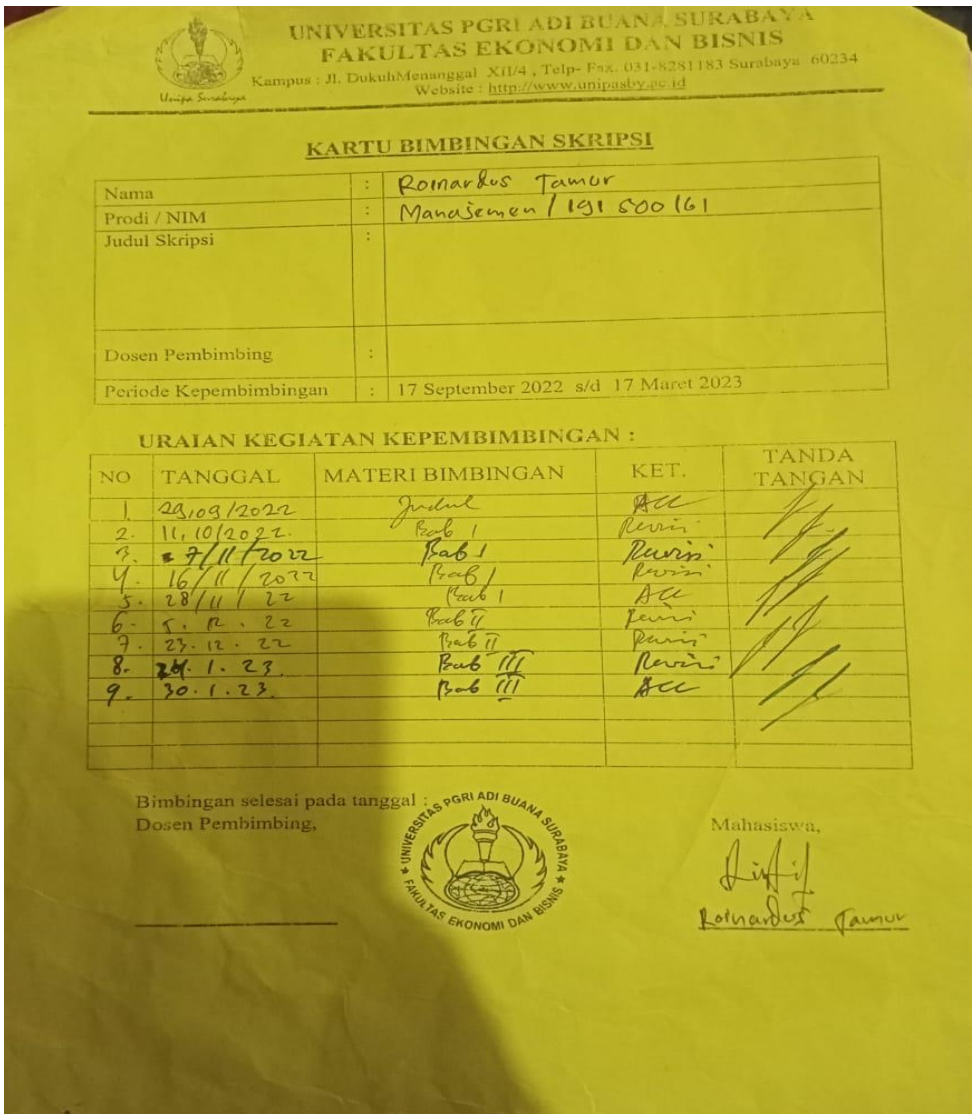 UNIVERSITAS PGRI ADI BUANA SURABAYA
FAKULTAS EKONOMI DAN BISNIS
Kampus : Jl. DukuhMenanggal XII/4 , Telp- Fax. 031-8281183 Surabaya 60234
Website : http://www.unipasby.ac.id
Unipa Surabaya
KARTU BIMBINGAN SKRIPSI
Nama : Roinardus Tamur
Prodi / NIM : Manajemen / 191 500 161
Judul Skripsi :
Dosen Pembimbing :
Periode Kepembimbingan : 17 September 2022 s/d 17 Maret 2023
URAIAN KEGIATAN KEPEMBIMBINGAN :
NO TANGGAL MATERI BIMBINGAN KET. TANDA TANGAN
1 29/09/2022 Judul ACC
2. 11/10/2022. Bab 1 Revisi
3. 7/11/2022 Bab 1 Revisi
4. 16/11/2022 Bab 1 Revisi
5. 28/11/22 Bab 1 ACC
6. 5. 12. 22 Bab II Revisi
7. 23. 12. 22 Bab II Revisi
8. 1. 23. Bab III Revisi
9. 30. 1. 23. Bab III ACC
Bimbingan selesai pada tanggal :
Dosen Pembimbing,
Mahasiswa,
UNIVERSITAS PGRI ADI BUANA SURABAYA
FAKULTAS EKONOMI DAN BISNIS
Roinardus Tamur